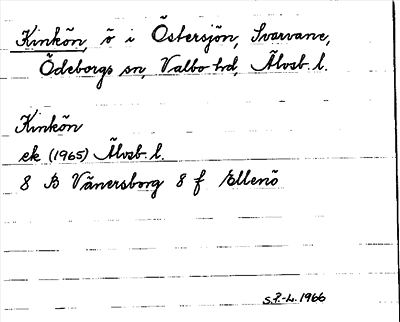 Kinkön, ö i Östersjön, Svarvane,
Ödeborgs sn, Valbo hd, Älvsb. l.
Kinkön
ek (1965) Älvsb. l.
8 B Vänersborg 8 f Ellenö
S.P.-L. 1966